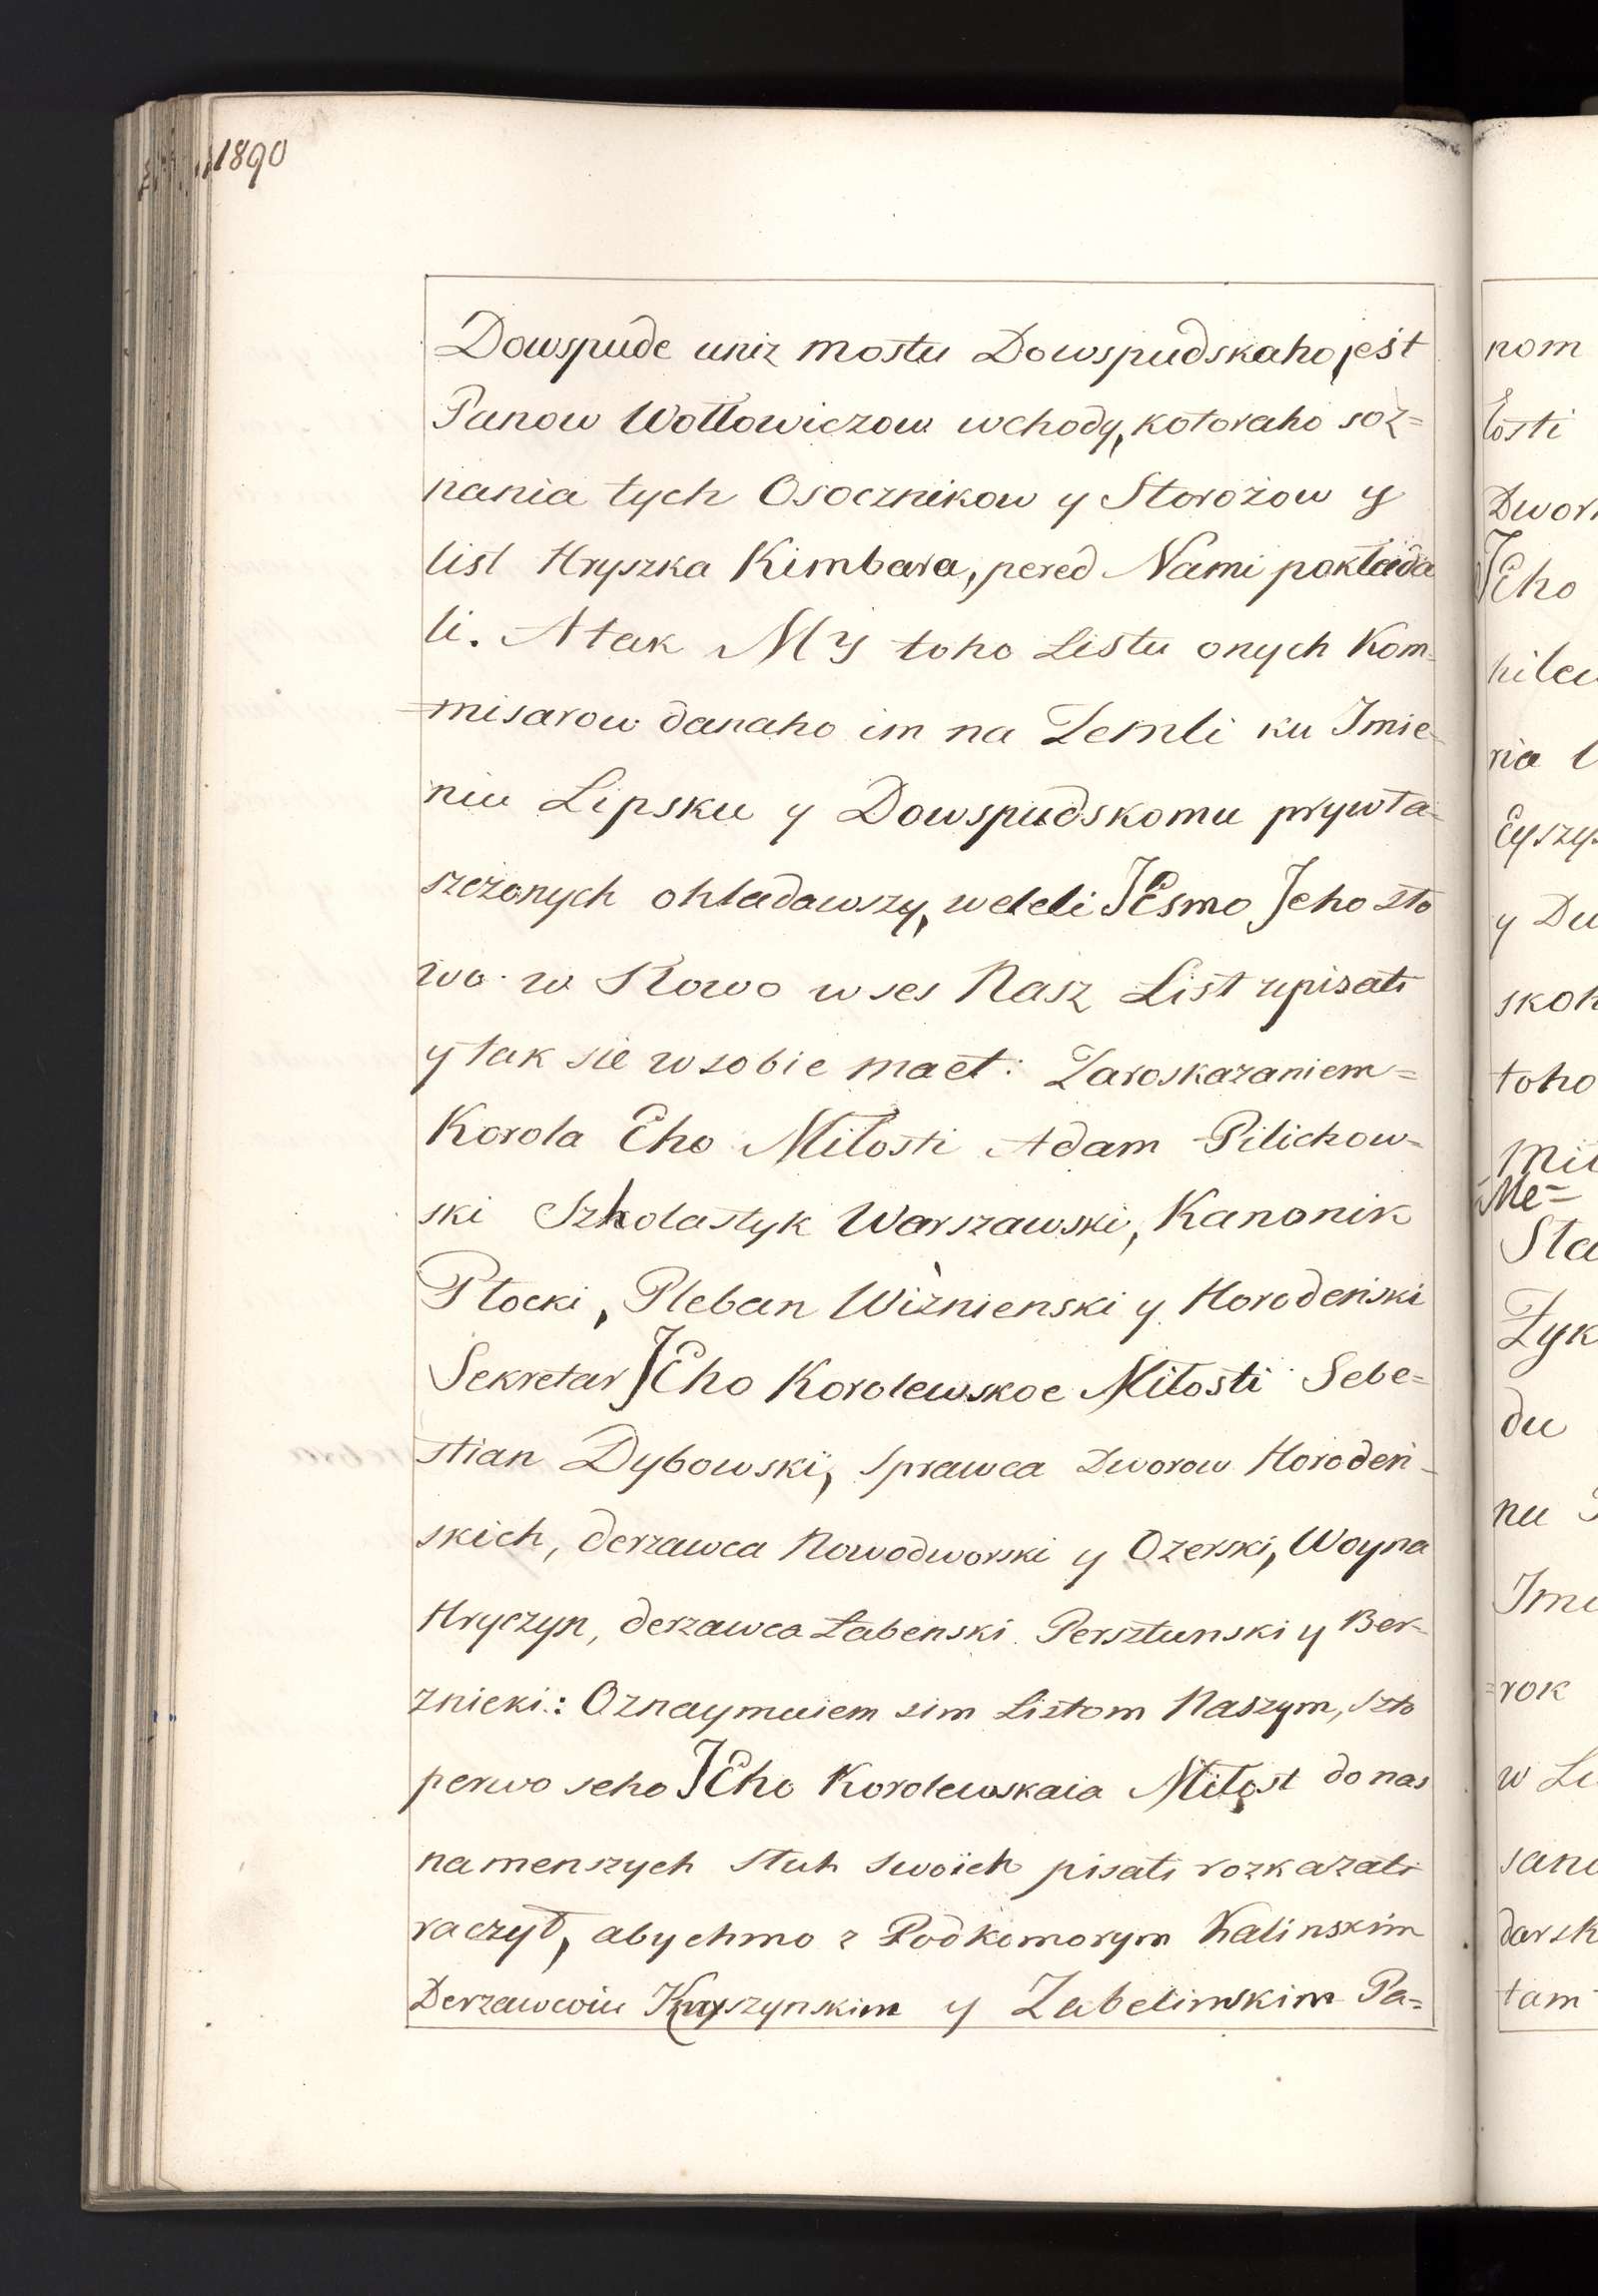 1890
Dowspude uniz mostu Dowspudskaho jest
Panow Wołłowiczow wchody, kotoraho soz=
nania tych Osocznikow y Storożow y
list Hryszka Kimbara, pered Nami pokłada
li. A tak My toho Listu onych Kom=
misarow danaho im na Zemli ku Imie=
niu Lipsku y Dowspudskomu prywła=
szczonych ohladawszy, weleli JEsmo Jeho sło
wo w Słowo w ses Nasz List upisati
y tak sie w sobie maet: Zaroskazaniem=
Korola Eho Miłosti Adam Pilichow=
ski Szkolastyk Warszawski, Kanonik
Płocki, Pleban Wiżnienski y Horodeński
Sekretar JEho Korolewskoe Miłosti Sebe=
stian Dybowski, Sprawca Dworow Horodeń=
skich, derzawca Nowodworski y Ozerski, Woyna
Hryczyn, derzawca Łabenski Persztunski y Ber=
znicki: Oznaymuiem sim Listom Naszym, szto
perwo seho JEho Korolewskaia Miłost do nas
namenszych słuh swoich pisati rozkazati
raczył, abychmo z Podkomorym Kalinskim
Derzawcoiu Knyszynskim y Zabelimskim Pa=
nom
łosti
Dwor
JEho
nia
y Du
skoh
toho
Me=
Sta
du
nu
rok
w Lu
darsk
tam